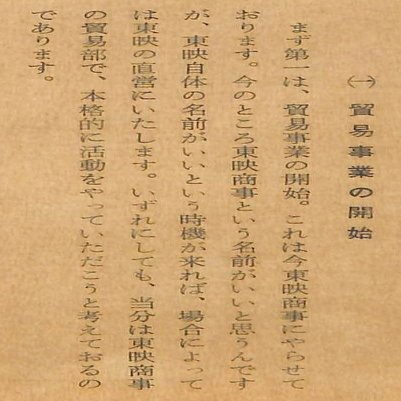 ㈠ 貿易事業の開始
まず第一は、貿易事業の開始。これは今東映商事にやらせて
おります。今のところ東映商事という名前がいいと思うんです
が、東映自体の名前がいいという時機が来れば、場合によって
は東映の直営にいたします。いずれにしても、当分は東映商事
の貿易部で、本格的に活動をやっていただこうと考えておるの
であります。